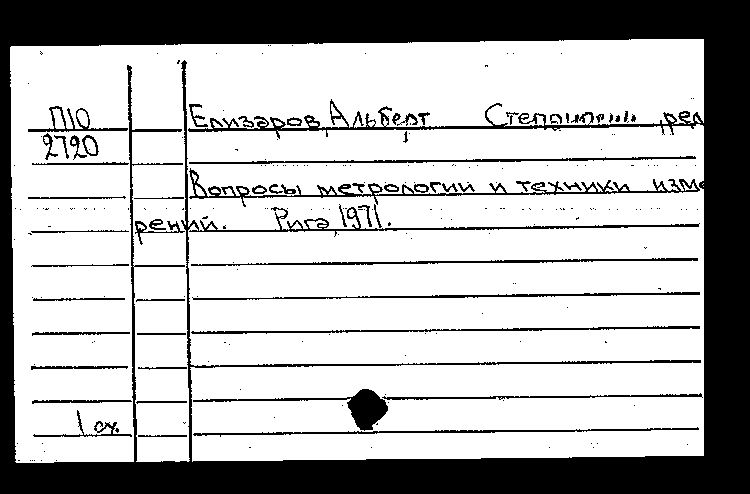 П10 Елизаров, Альберт ред
2720
Вопросы метрологии и техники изме
рений. Рига, 1971.
1